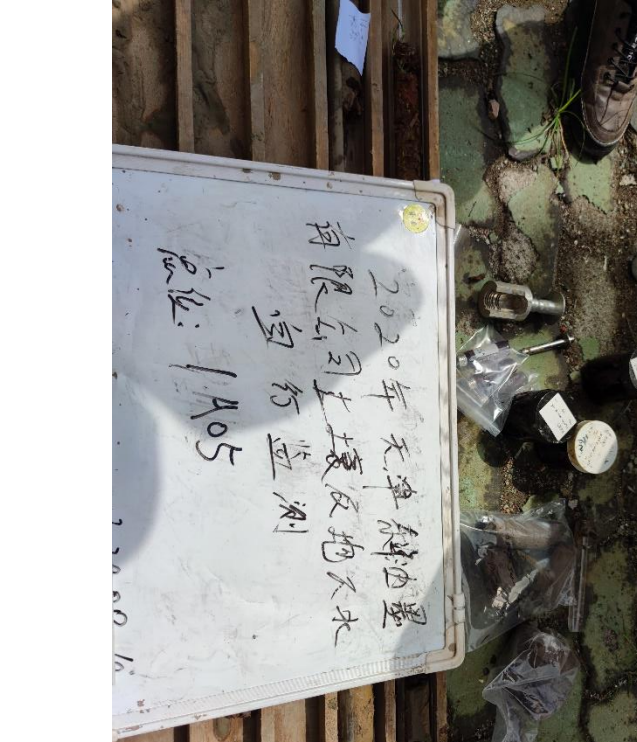 2020年天津油墨
有限公司土壤及地下水
自行监测
点位: 1A05